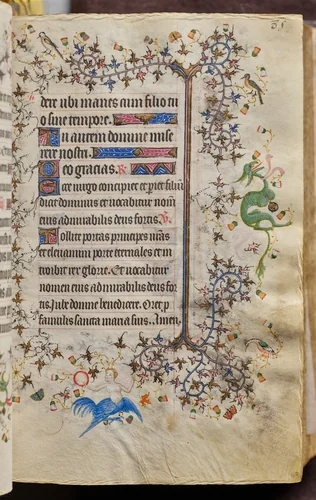 dere ubi manes cum filio tu
o sine tempore.
Tu autem domine mise
rere nostri.
Deo gracias. R
Ecce virgo concipiet et pariet filiū
dicit dominus et vocabitur nomē
eius admirabilis deus fortis. V
Tollite portas principes vr̄as
et elevamini porte eternales et in
troibit rex glorie. Et vocabitur
nomen eius admirabilis deus for
tis. Jube domne benedicere. Ore p
famulis sancta maria suis. Amen.